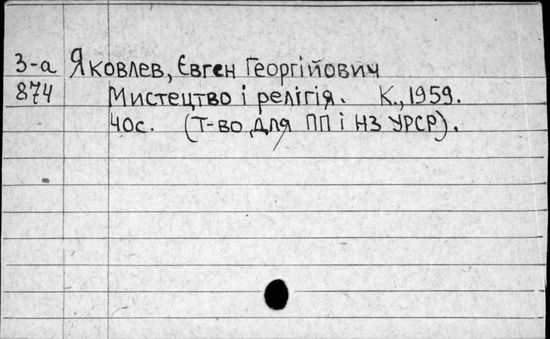 З-а Яковлев, Євген Георгійович
874 Мистецтво і релігія. К., 1959.
40с. (Т-во для ПП і НЗ УРСР).